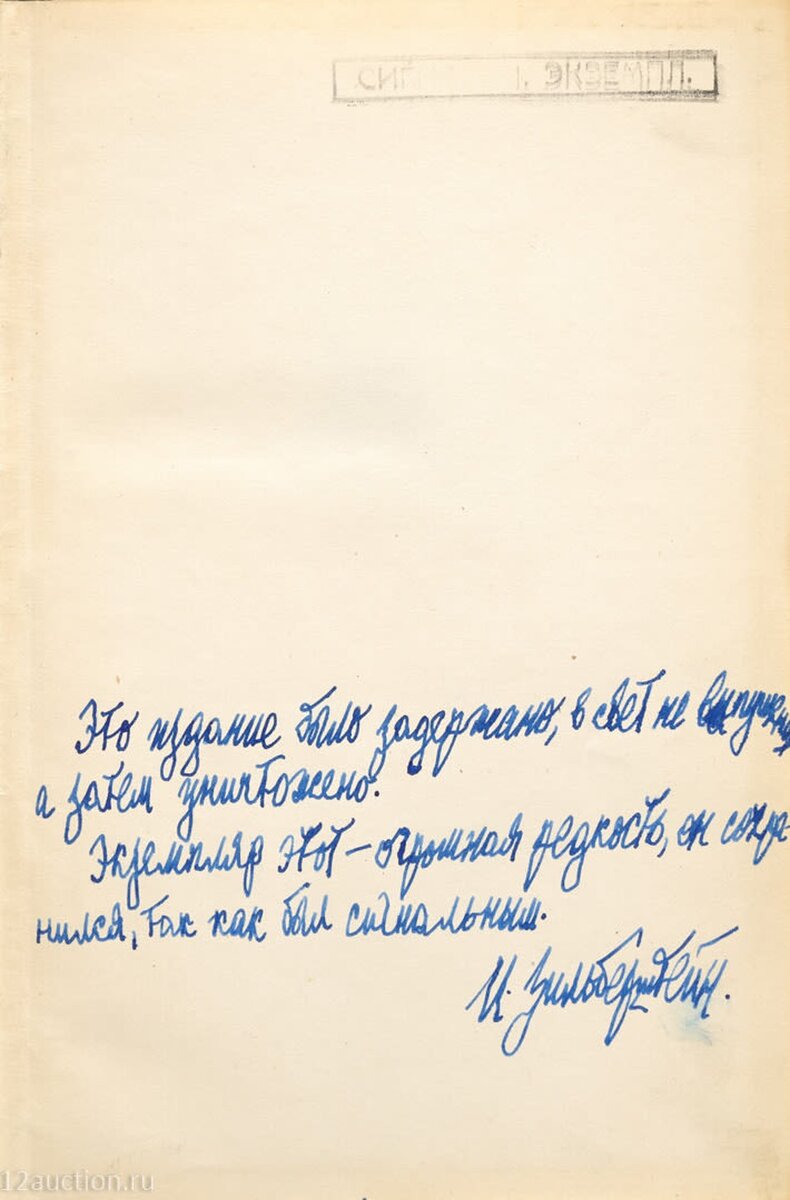 СИГ І. ЭКЗЕМПЛ.
Это издание было задержано, в свет не выпущено,
а затем уничтожено.
Экземпляр этот — огромная редкость, он сохра-
нился, так как был сигнальным.
И. Зильберштейн.
12auction.ru